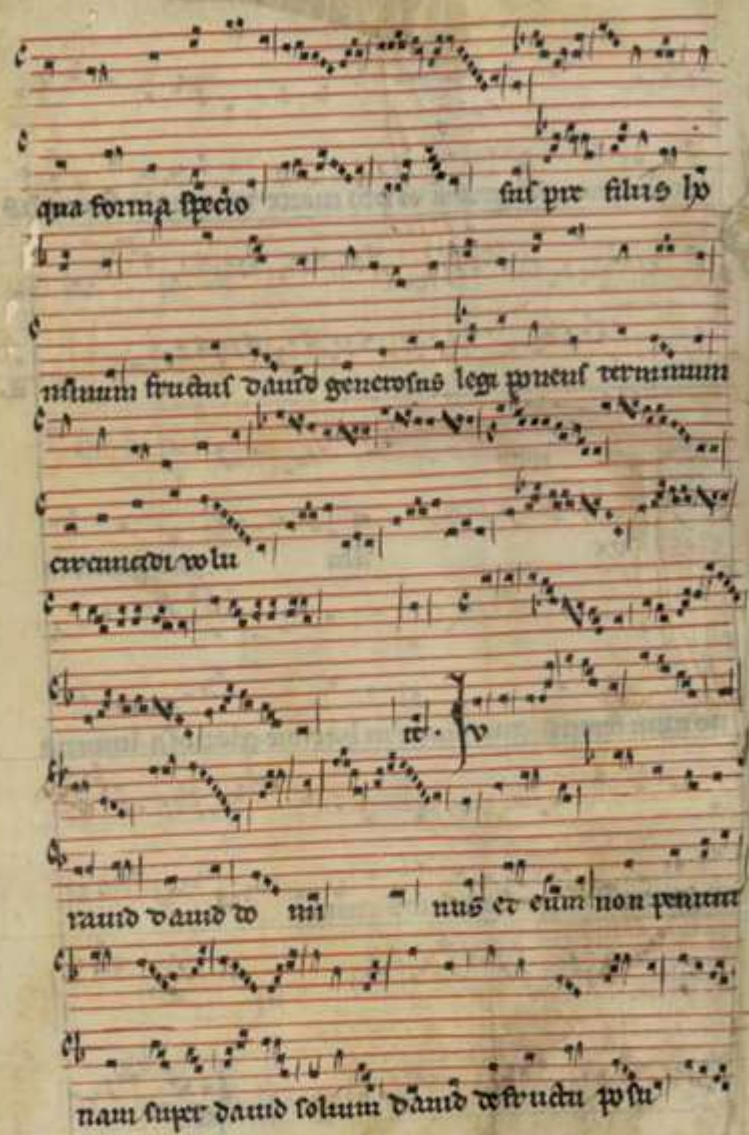 qua forma specio sus pre filiis ho
minum fructus dauid generosus legi ponens terminum
circumcidi uolu
it. Iu
rauid dauid do mi nus et eum non penitu
nam super dauid solium dauid de fructu posu